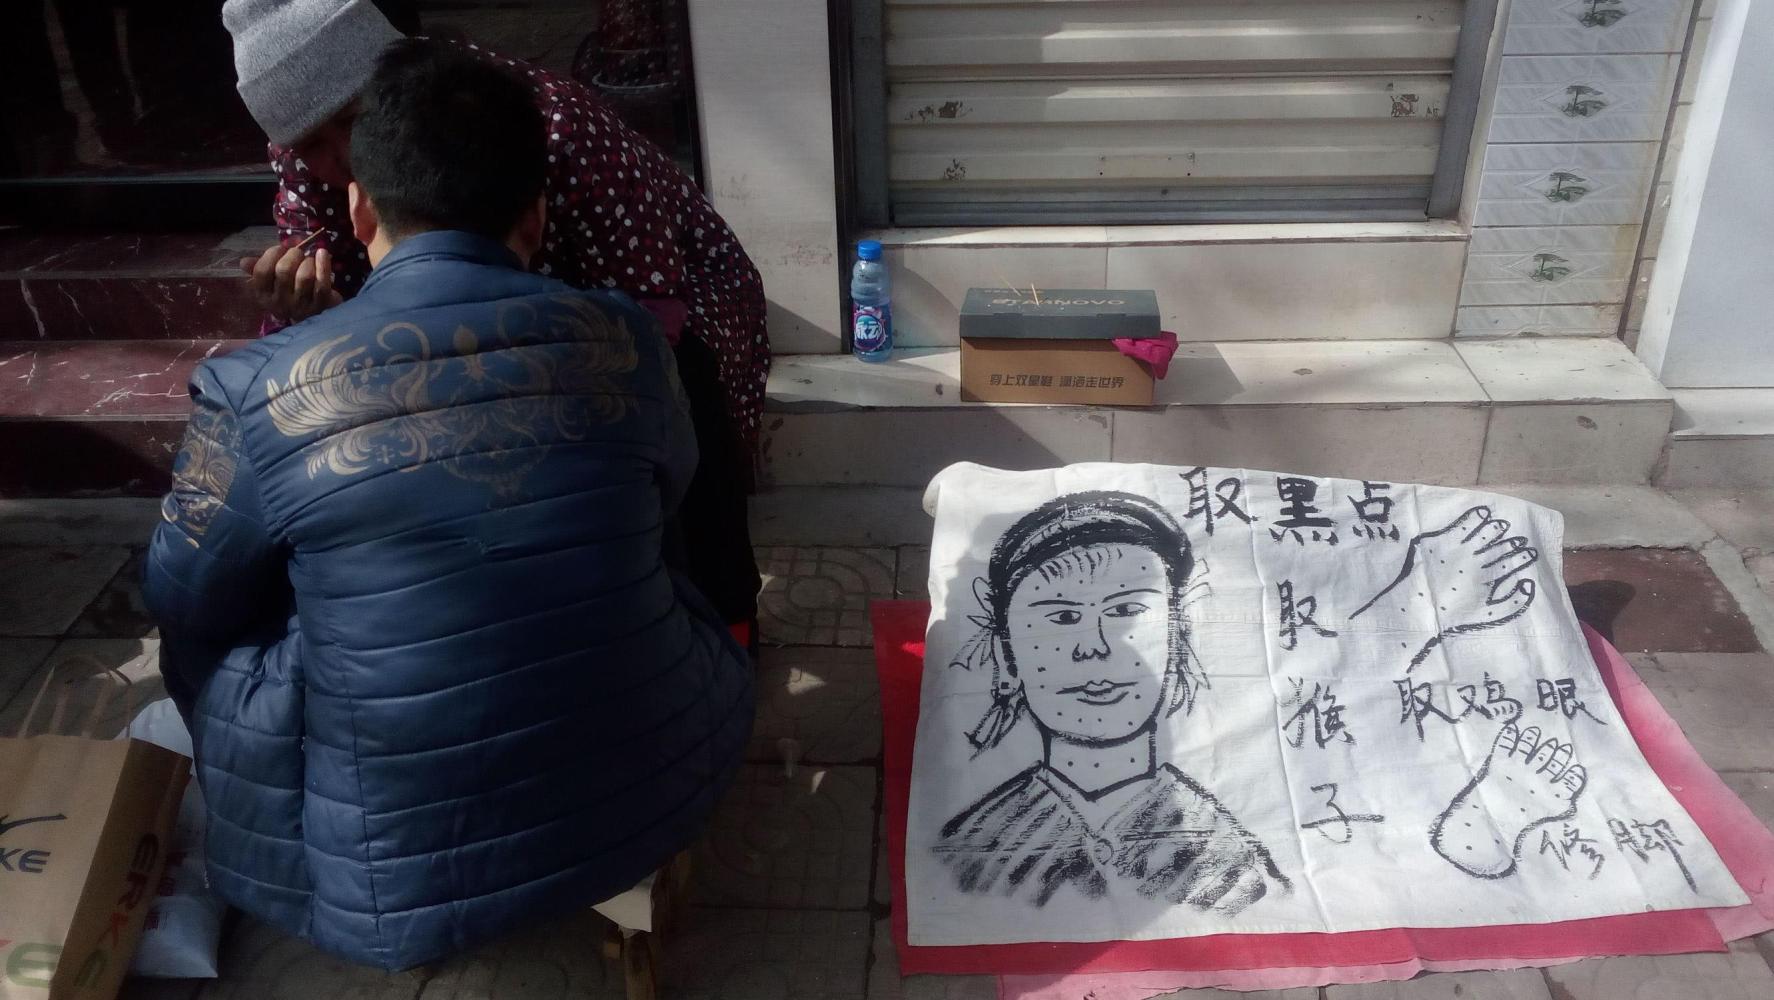 取黑点
取猴子
取鸡眼
修脚
STARNOVO
穿上双星鞋 潇洒走世界
KE
ERKE